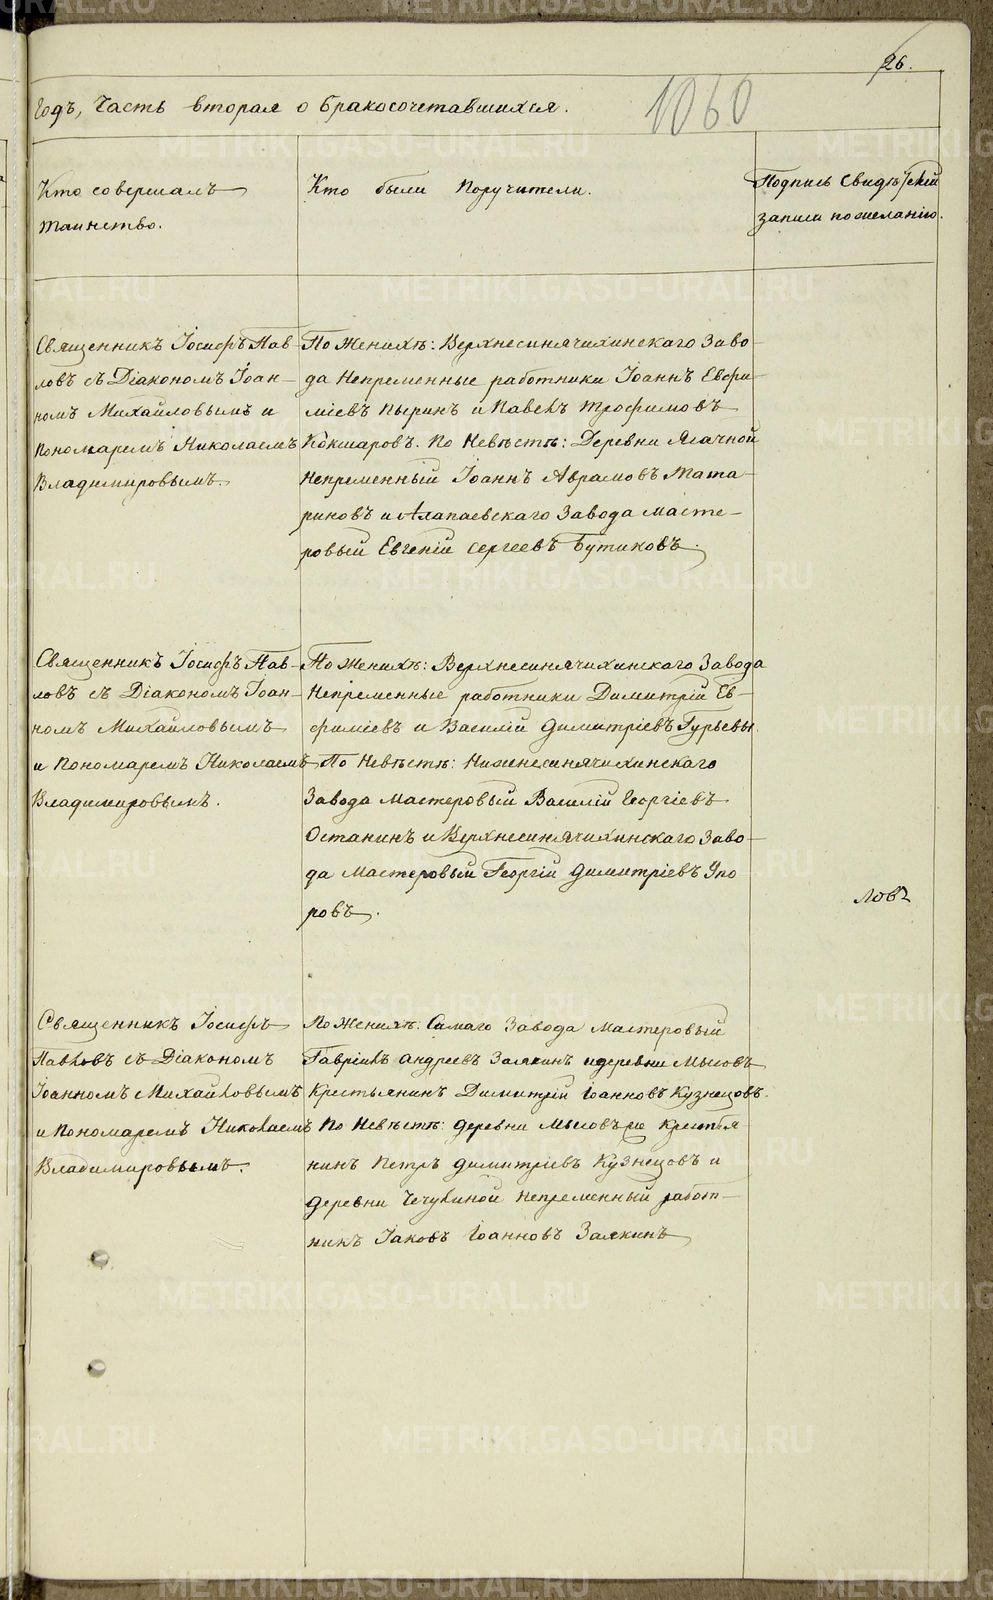 26.
1060
Годъ, Часть вторая о бракосочетавшихся.
Кто совершалъ
таинство.
Кто были Поручители.
Подпись Свидѣт
записи по желанію.
Священникъ Іосифъ Пав-
ловъ съ Діакономъ Іоан-
номъ Михайловымъ и
Пономаремъ Николаемъ
Владимировымъ.
По Женихѣ: Верхнесинячихинскаго Заво-
да Непременные работники Іоаннъ Евфи-
міевъ Пыринъ и Павелъ Трофимовъ
Кокшаровъ. По Невѣстѣ: Деревни Ясачной
Непременный Іоаннъ Аврамовъ Тата-
риновъ и Алапаевскаго Завода масте-
ровый Евгеній Сергеевъ Бутиковъ.
Священникъ Іосифъ Пав-
ловъ съ Діакономъ Іоан-
номъ Михайловымъ
и Пономаремъ Николаемъ
Владимировымъ.
По Женихѣ: Верхнесинячихинскаго Завода
Непременные работники Димитрій Ев-
фиміевъ и Василій Димитріевъ Гурьевы.
По Невѣстѣ: Нижнесинячихинскаго
Завода Мастеровый Василій Георгіевъ
Останинъ и Верхнесинячихинскаго Заво-
да Мастеровый Георгій Димитріевъ Упо
ровъ.
ловъ
Священникъ Іосифъ
Павловъ съ Діакономъ
Іоанномъ Михайловымъ
и Пономаремъ Николаемъ
Владимировымъ.
По Женихѣ: Самаго Завода Мастеровый
Гавріилъ Андреевъ Заякинъ и деревни Мысовъ
Крестьянинъ Димитрій Іоанновъ Кузнецовъ.
По Невѣстѣ: деревни Мысовъ же Крестья
нинъ Петръ Димитріевъ Кузнецовъ и
деревни Чечулиной Непременный работ-
никъ Іаковъ Іоанновъ Заякинъ
METRIKI.GASO-URAL.RU